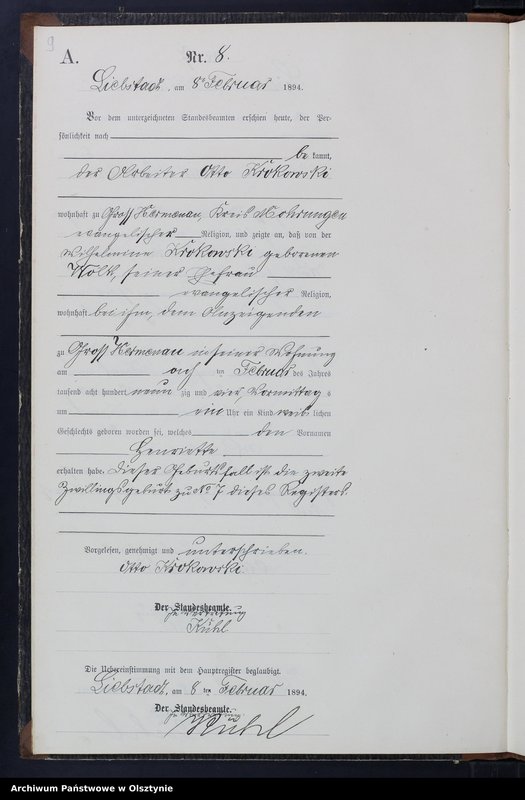 9
A.
Nr. 8.
Liebstadt, am 8ten Februar 1894.
Vor dem unterzeichneten Standesbeamten erschien heute, der Per-
sönlichkeit nach
be kannt,
der Arbeiter Otto Krokowski
wohnhaft zu Gross Hermenau, Kreis Mohrungen
evangelischer Religion, und zeigte an, daß von der
Wilhelmine Krokowski geborenen
Nolk, seiner Ehefrau
evangelischer Religion,
wohnhaft bei ihm, dem Anzeigenden
zu Gross Hermenau in seiner Wohnung
am ten Februar des Jahres
tausend acht hundert neun zig und vier, Vormittag s
um ein Uhr ein Kind weib lichen
Geschlechts geboren worden sei, welches den Vornamen
Henriette
erhalten habe. Dieser Geburtsfall ist die zweite
Zwillingsgeburt zu No 7 dieses Registers.
Vorgelesen, genehmigt und unterschrieben.
Otto Krokowski.
Der Standesbeamte.
In Vertretung
Kühl
Die Uebereinstimmung mit dem Hauptregister beglaubigt.
Liebstadt, am 8 ten Februar 1894.
Der Standesbeamte.
In Vertretung
Kühl
Archiwum Państwowe w Olsztynie